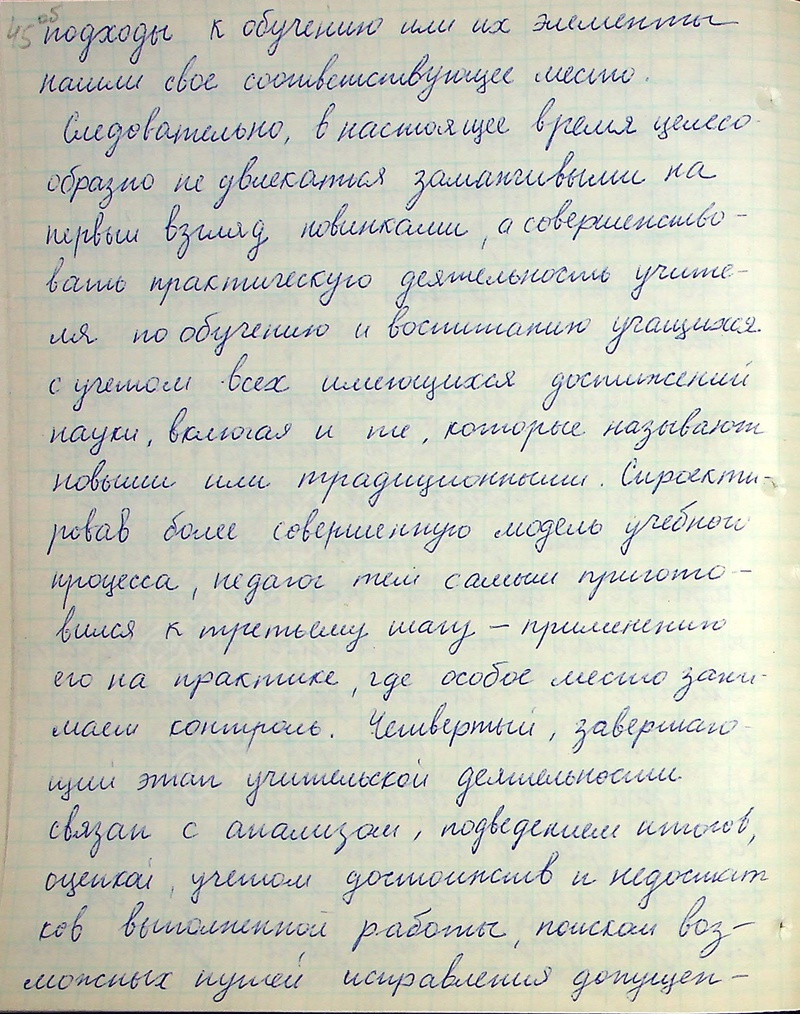 45об
подходы к обучению или их элементы
нашли свое соответствующее место.
Следовательно, в настоящее время целесо-
образно не увлекаться заманчивыми на
первый взгляд новинками, а совершенство-
вать практическую деятельность учите-
ля по обучению и воспитанию учащихся
с учетом всех имеющихся достижений
науки, включая и те, которые называют
новыми или традиционными. Спроекти-
ровав более совершенную модель учебного
процесса, педагог тем самым пригото-
вился к третьему шагу – применению
его на практике, где особое место зани-
мает контроль. Четвертый, завершаю-
щий этап учительской деятельности
связан с анализом, подведением итогов,
оценкой, учетом достоинств и недостат
ков выполненной работы, поиском воз-
можных путей исправления допущен-